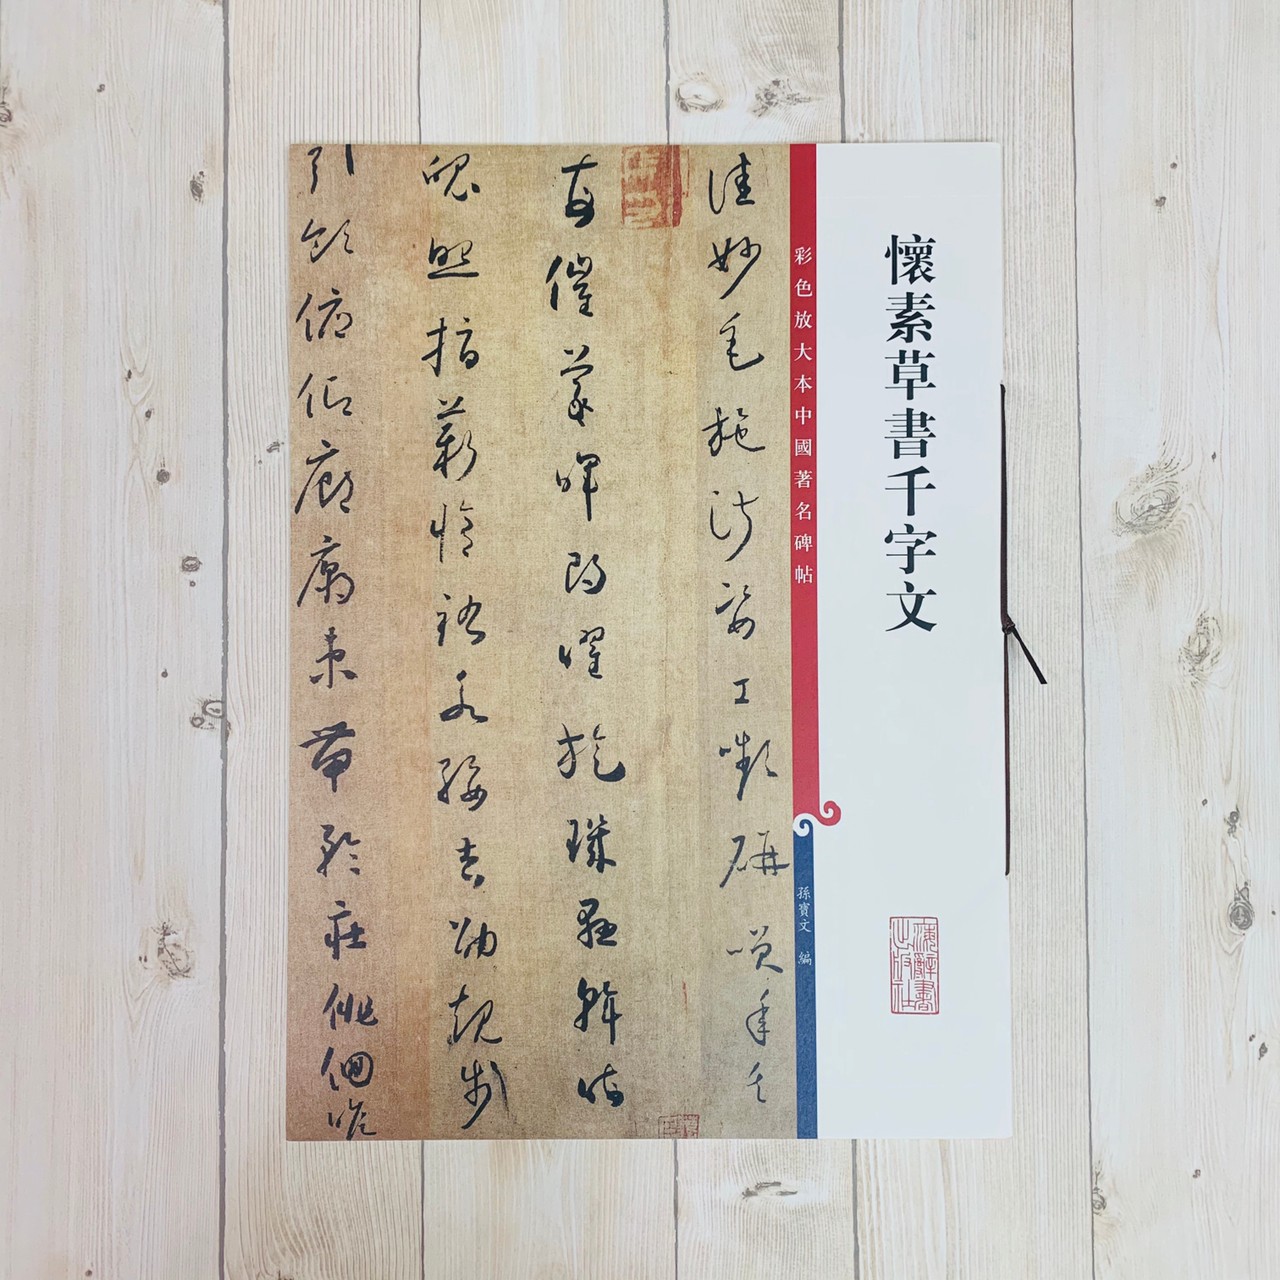 懷素草書千字文
上海辭書出版社
彩色放大本中國著名碑帖
孫寶文 編
佳妙毛施淑姿工嚬研笑年矢
每催羲暉朗曜旋璣懸斡晦
魄照指薪脩祜永綏吉劭矩步
引領俯仰廊廟束帶矜莊徘徊瞻